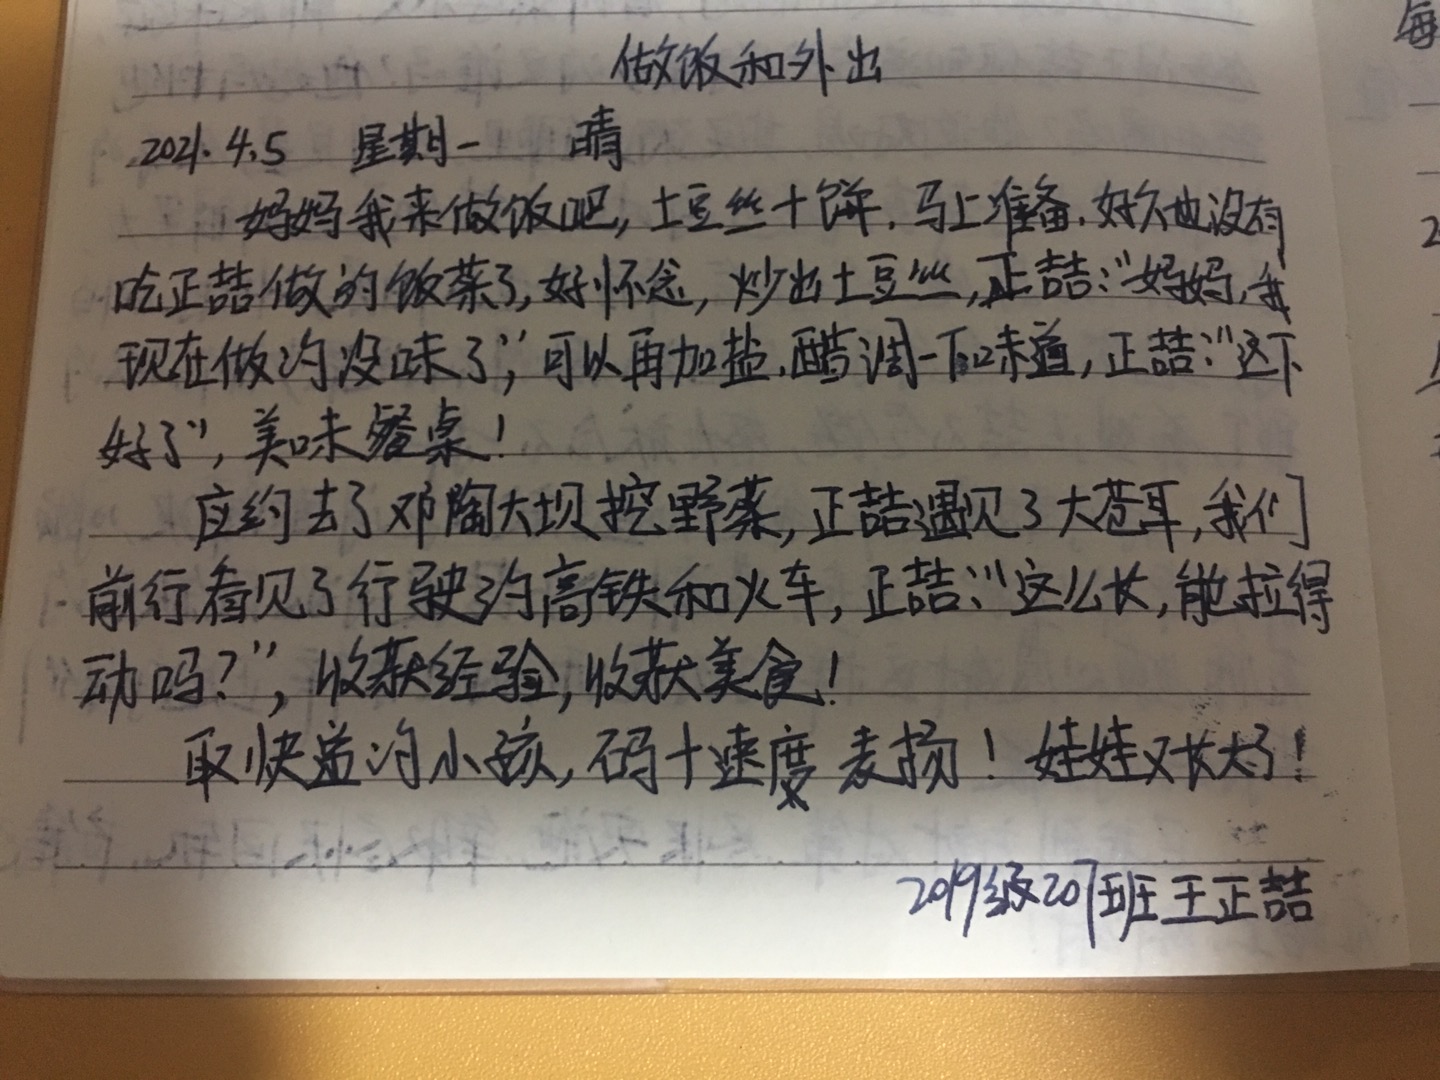 做饭和外出
2021.4.5 星期一 晴
妈妈我来做饭吧,土豆丝十饼.马上准备.好久也没有
吃正喆做的饭菜了,好怀念,炒出土豆丝,正喆:"妈妈,我
现在做的没味了",可以再加盐.醋调一下味道,正喆:"这下
好了",美味餐桌!
应约去了邓陶大坝挖野菜,正喆遇见了大苍耳,我们
前行看见了行驶的高铁和火车,正喆:"这么长,能拉得
动吗?",收获经验,收获美食!
取快递的小孩,码十速度 表扬!娃娃又长大了!
2019级207班王正喆
每
2